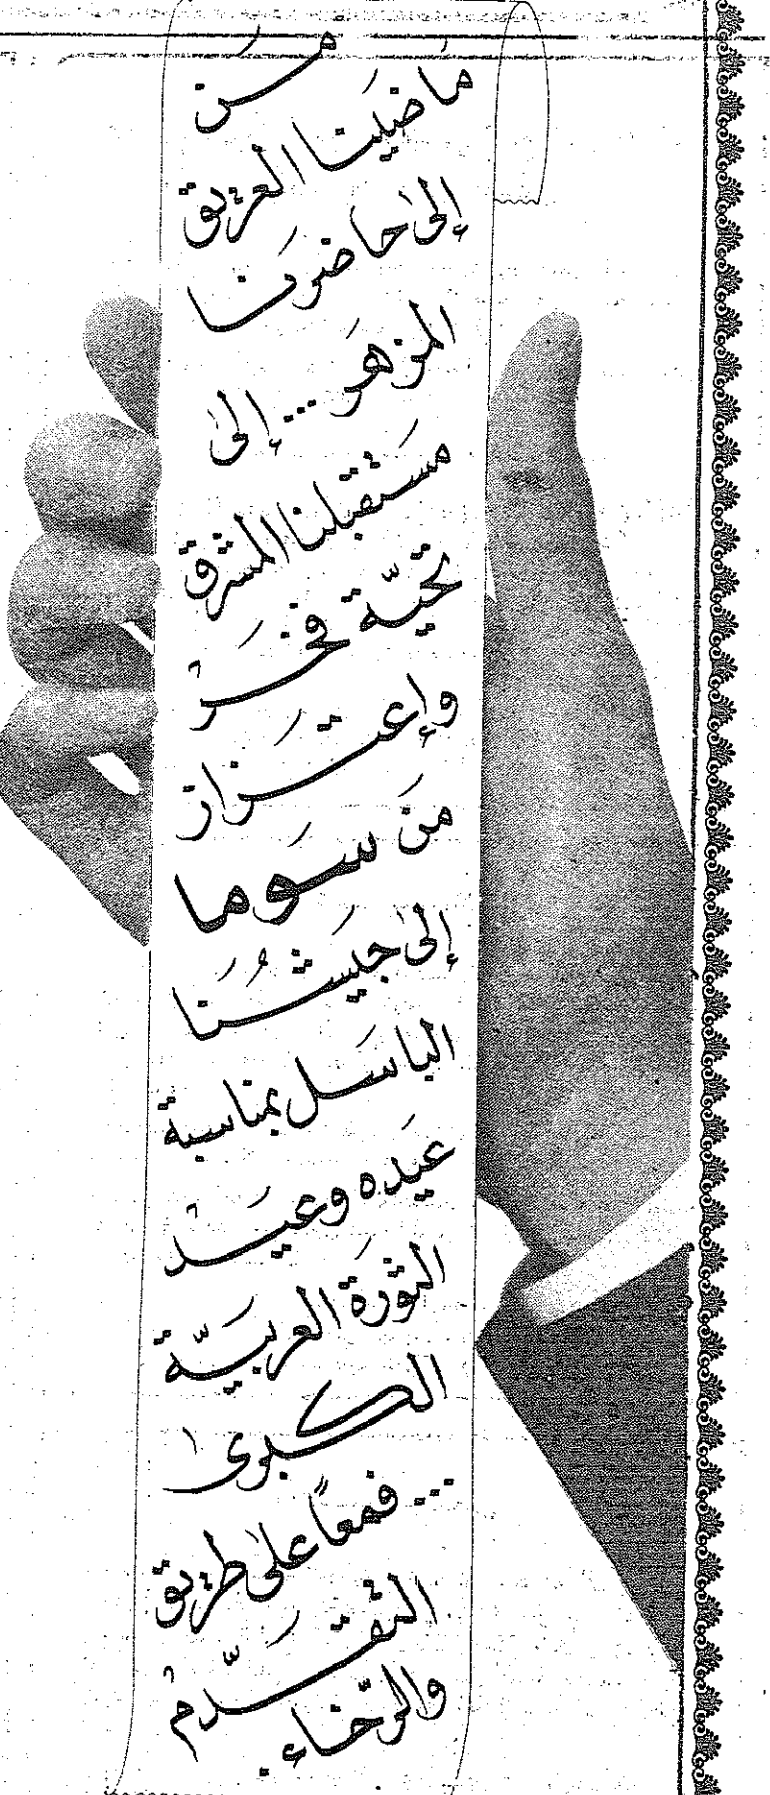 من
ماضينا العريق
إلى حاضرنا
المزهر... إلى
مستقبلنا المشرق
تحيّة فخر
وإعتزاز
من سوما
إلى جيشُنا
الباسل بمناسبة
عيده وعيد
الثورة العربيّة
الكبرى
... فمعاً على طريق
التقدّم
والرّخاء.